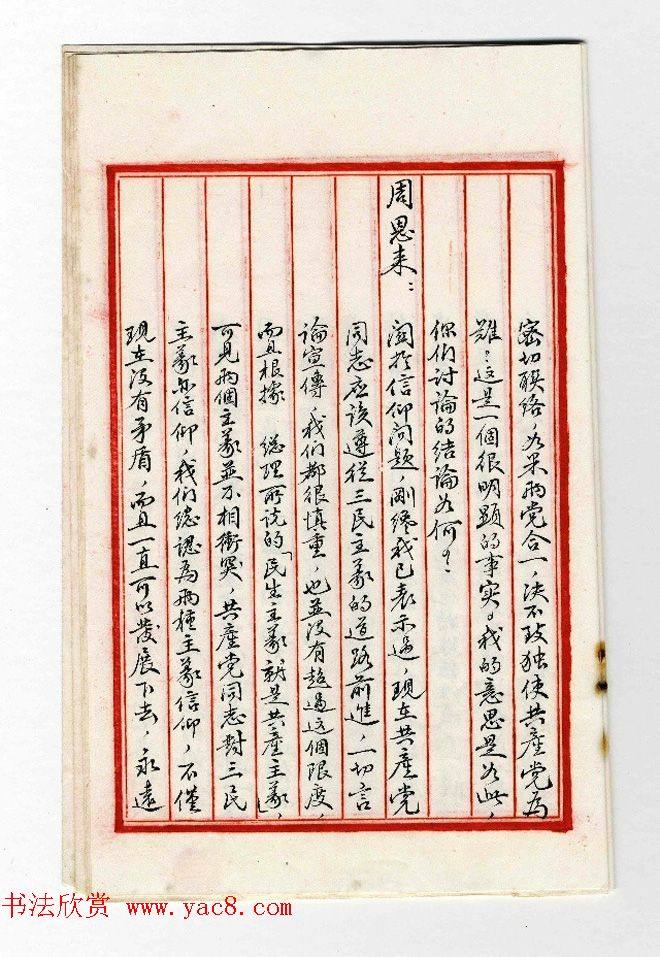 密切联络，如果两党合一，决不致独使共產党為
难？这是一個很明顕的事实。我的意思是如此，
你们讨论的结論如何？
周恩来：
関於信仰问题，剛纔我已表示过，现在共產党
同志应该遵從三民主義的道路前進，一切言
論宣傳，我们都很慎重，也並没有超過这個限度，
而且根據 総理所说的「民生主義就是共產主義」，
可見两個主義並不相衝突，共產党同志對三民
主義亦信仰，我们總認為两種主義信仰，不僅
现在没有矛盾，而且一直可以發展下去，永遠
书法欣赏 www.yac8.com